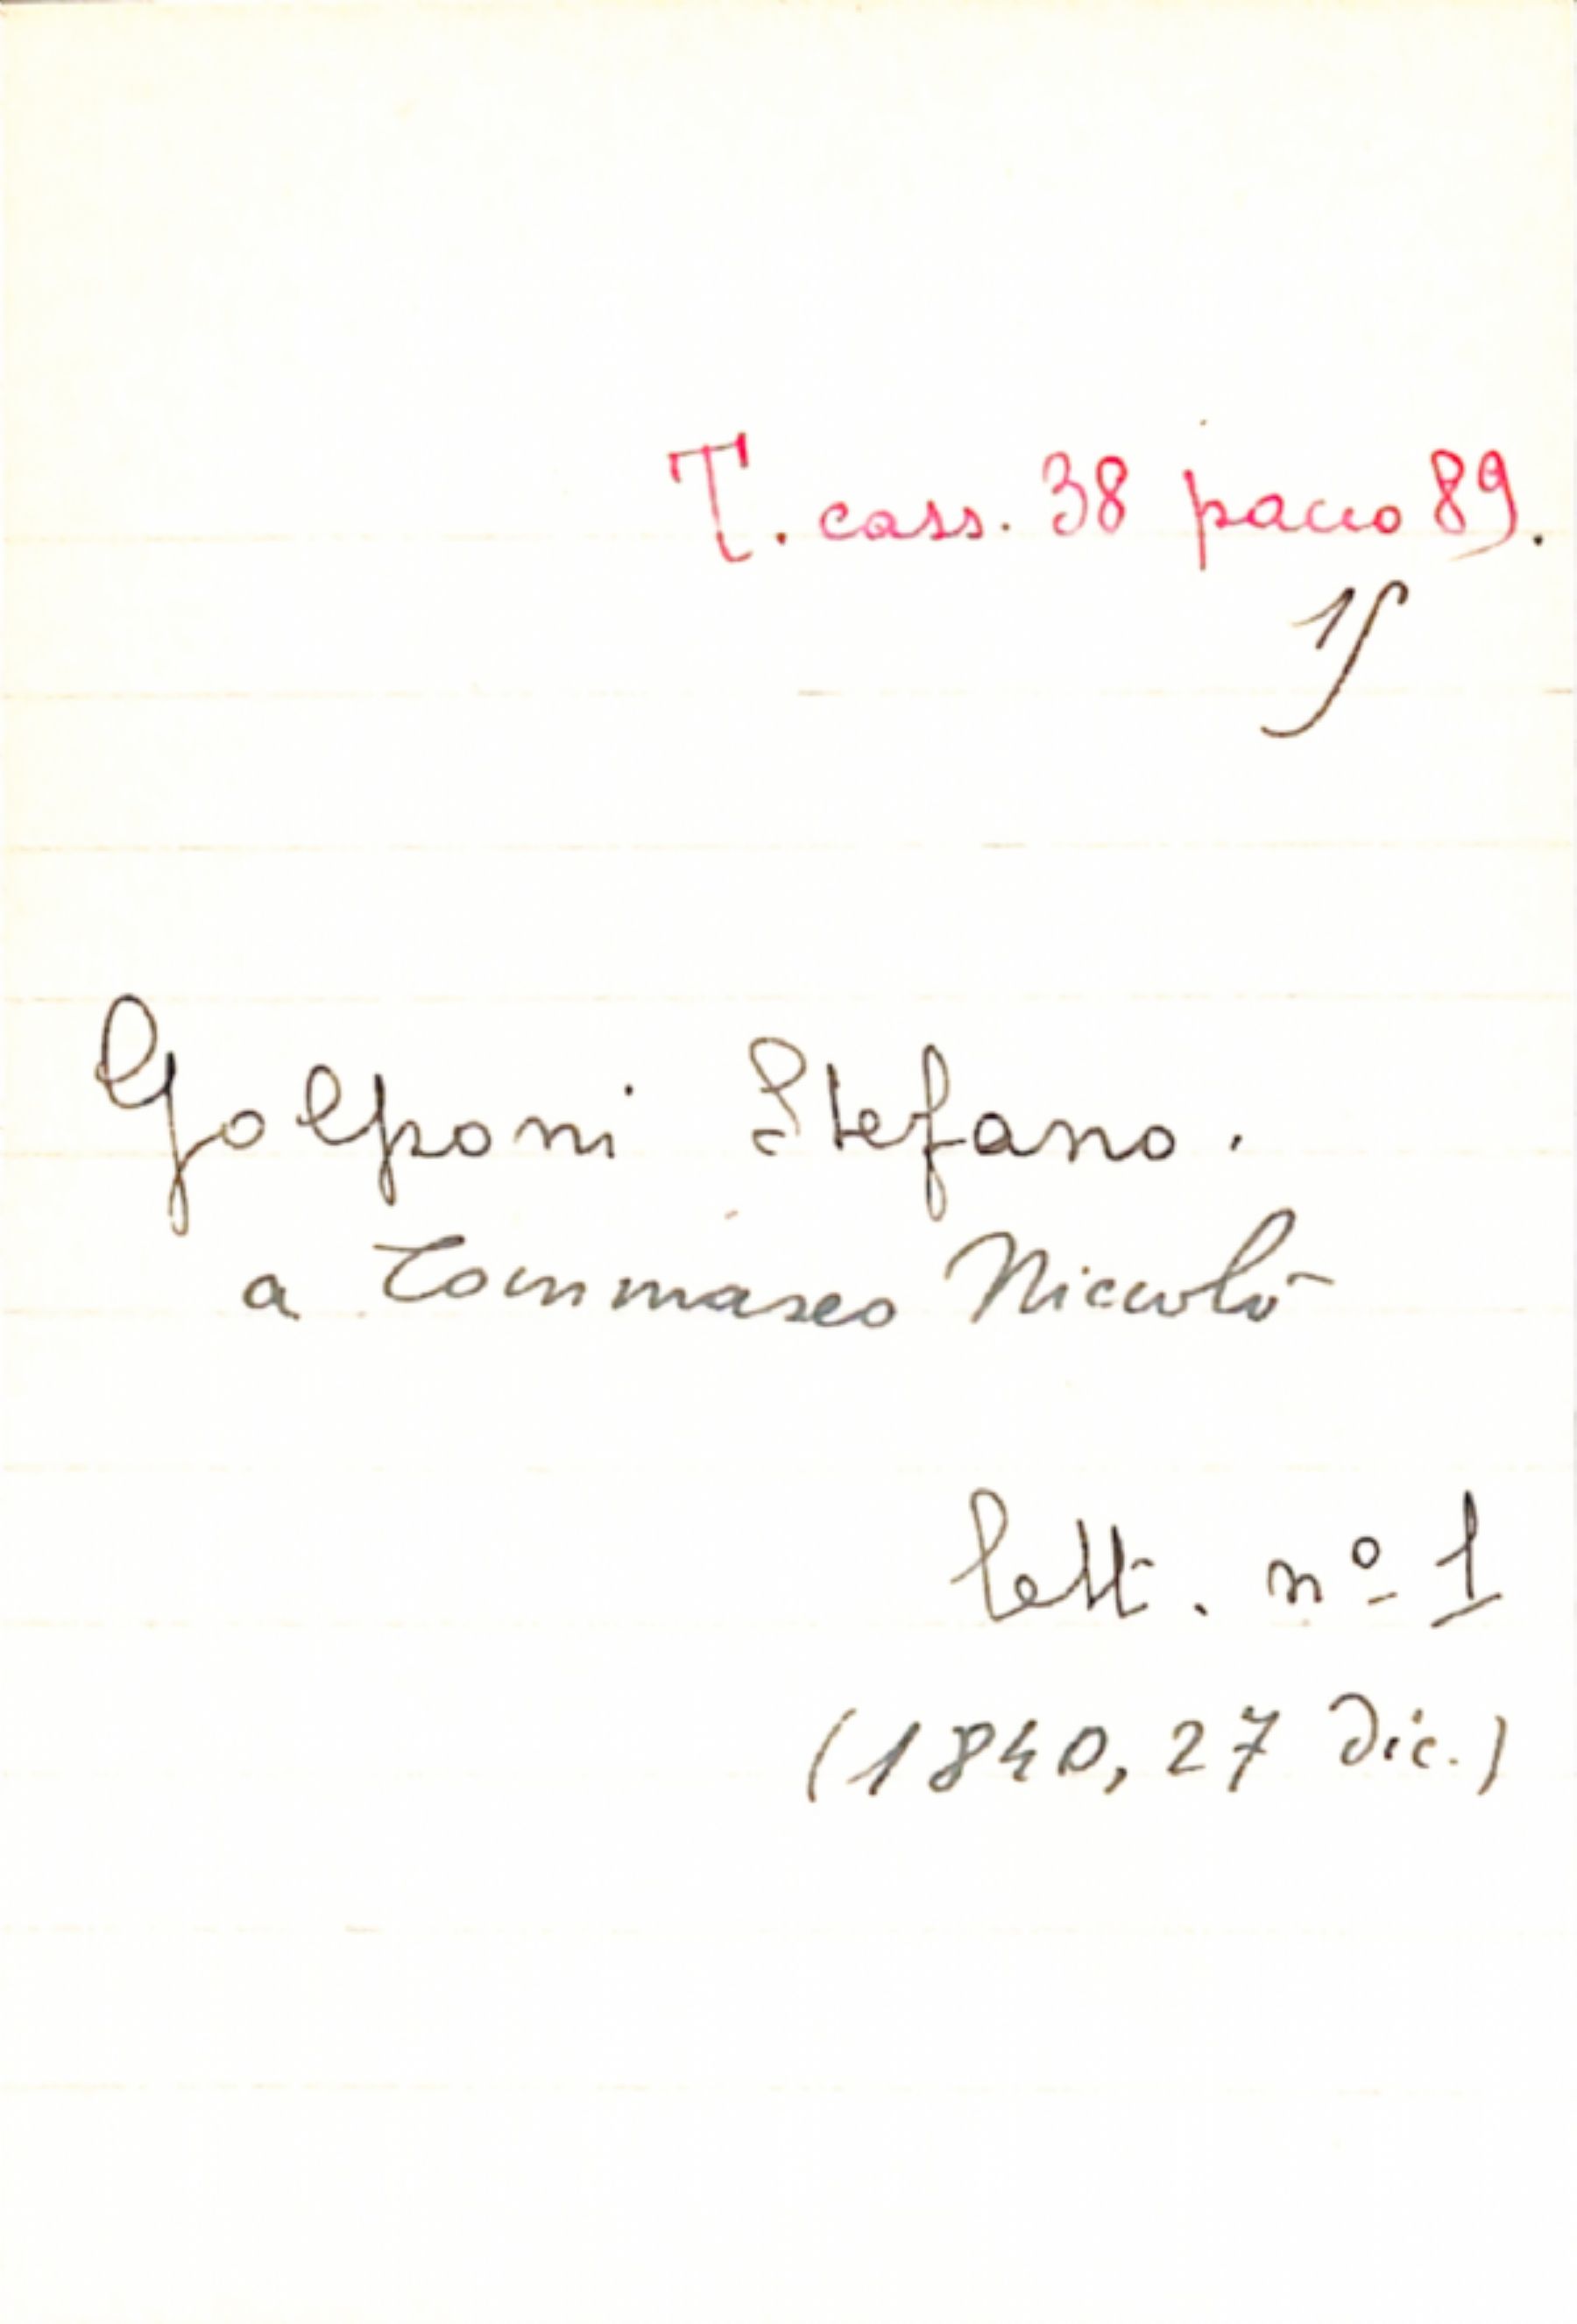 T. cass. 38 pacco 89.
Golponi Stefano.
a Tommaseo Niccolò
lett. nº 1
(1840, 27 dic.)